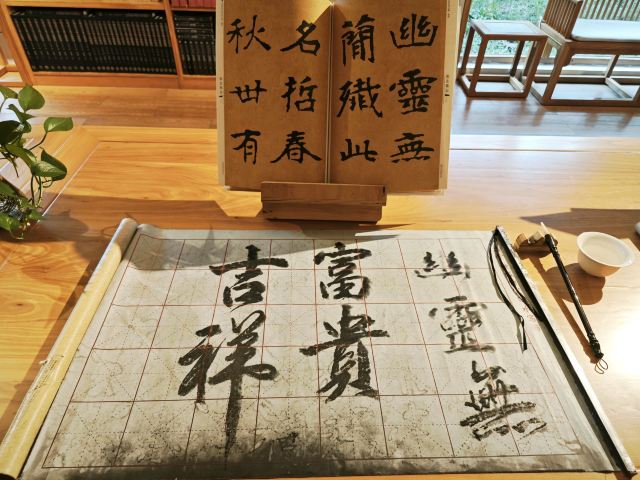 幽靈無
簡緻此
名哲春
秋世有
幽靈無
富貴
吉祥